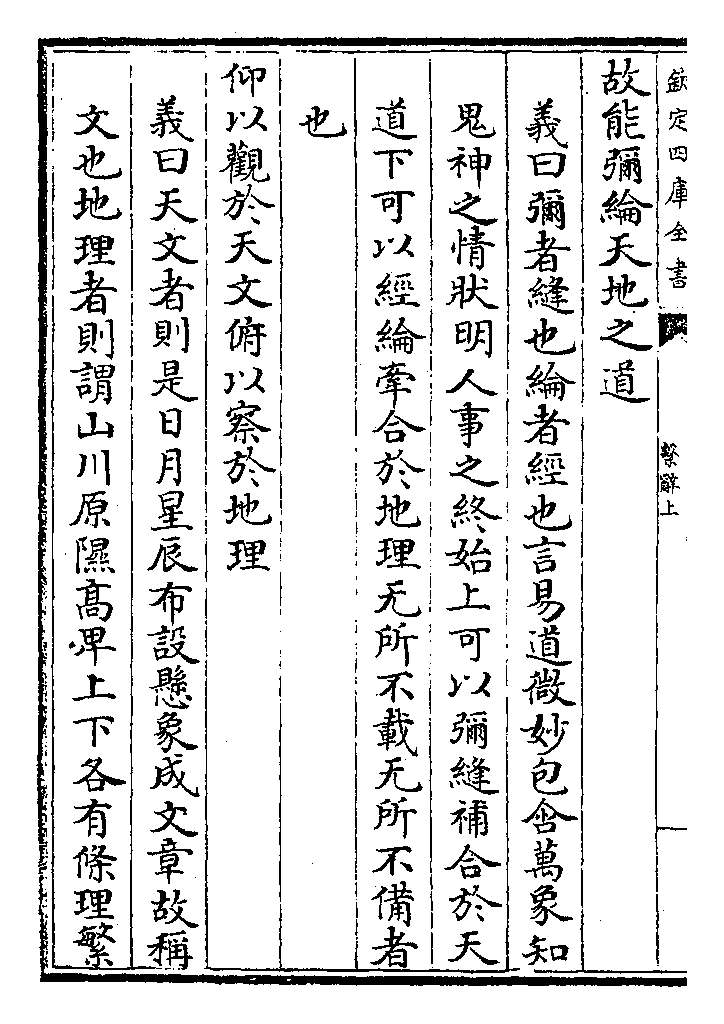 欽定四庫全書
繫辭上
故能彌綸天地之道
義曰彌者縫也綸者經也言易道微妙包含萬象知
鬼神之情狀明人事之終始上可以彌縫補合於天
道下可以經綸牽合於地理无所不載无所不備者
也
仰以觀於天文俯以察於地理
義曰天文者則是日月星辰布設懸象成文章故稱
文也地理者則謂山川原隰髙卑上下各有條理繁